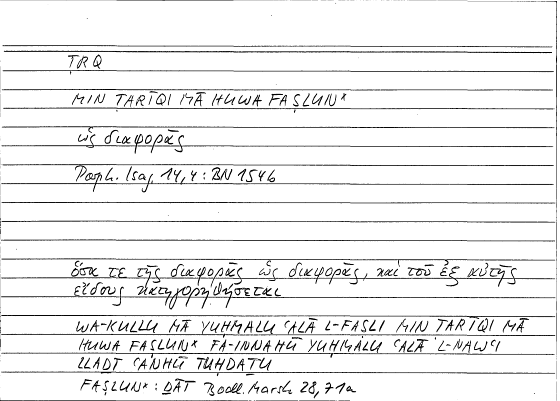 ṬRQ
MIN ṬARĪQI MĀ HUWA FAṢLUN*
ὡς διαφορᾶς
Porph. Isag. 14,4: BN 1546
ὅσα τε τῆς διαφορᾶς ὡς διαφορᾶς, καὶ τοῦ ἐξ αὐτῆς
εἴδους κατηγορηθήσεται
WA-KULLU MĀ YUḤMALU ʿALĀ L-FAṢLI MIN ṬARĪQI MĀ
HUWA FAṢLUN* FA-INNAHŪ YUḤMALU ʿALĀ 'L-NAWʿI
LLAḎĪ ʿANHŪ TUḤDAṮU
FAṢLUN*: ḎĀT Bodl. Marsh 28,71a